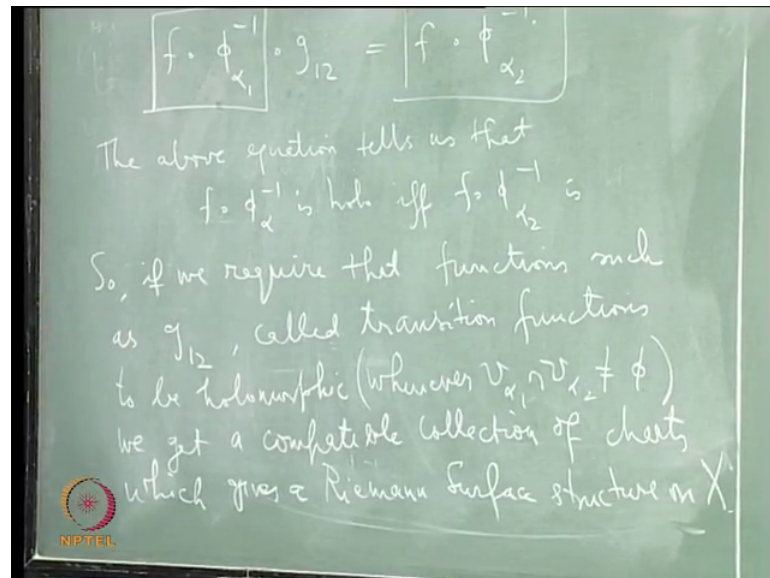 f ∘ ϕ_{α_1}^{-1} ∘ g_{12} = f ∘ ϕ_{α_2}^{-1}
The above equation tells us that
f ∘ ϕ_α^{-1} is holo iff f ∘ ϕ_{α_2}^{-1} is
So, if we require that functions such
as g_{12}, called transition functions
to be holomorphic (whenever U_{α_1} ∩ U_{α_2} ≠ ϕ)
we get a compatible collection of charts
which gives a Riemann Surface structure on X.
NPTEL